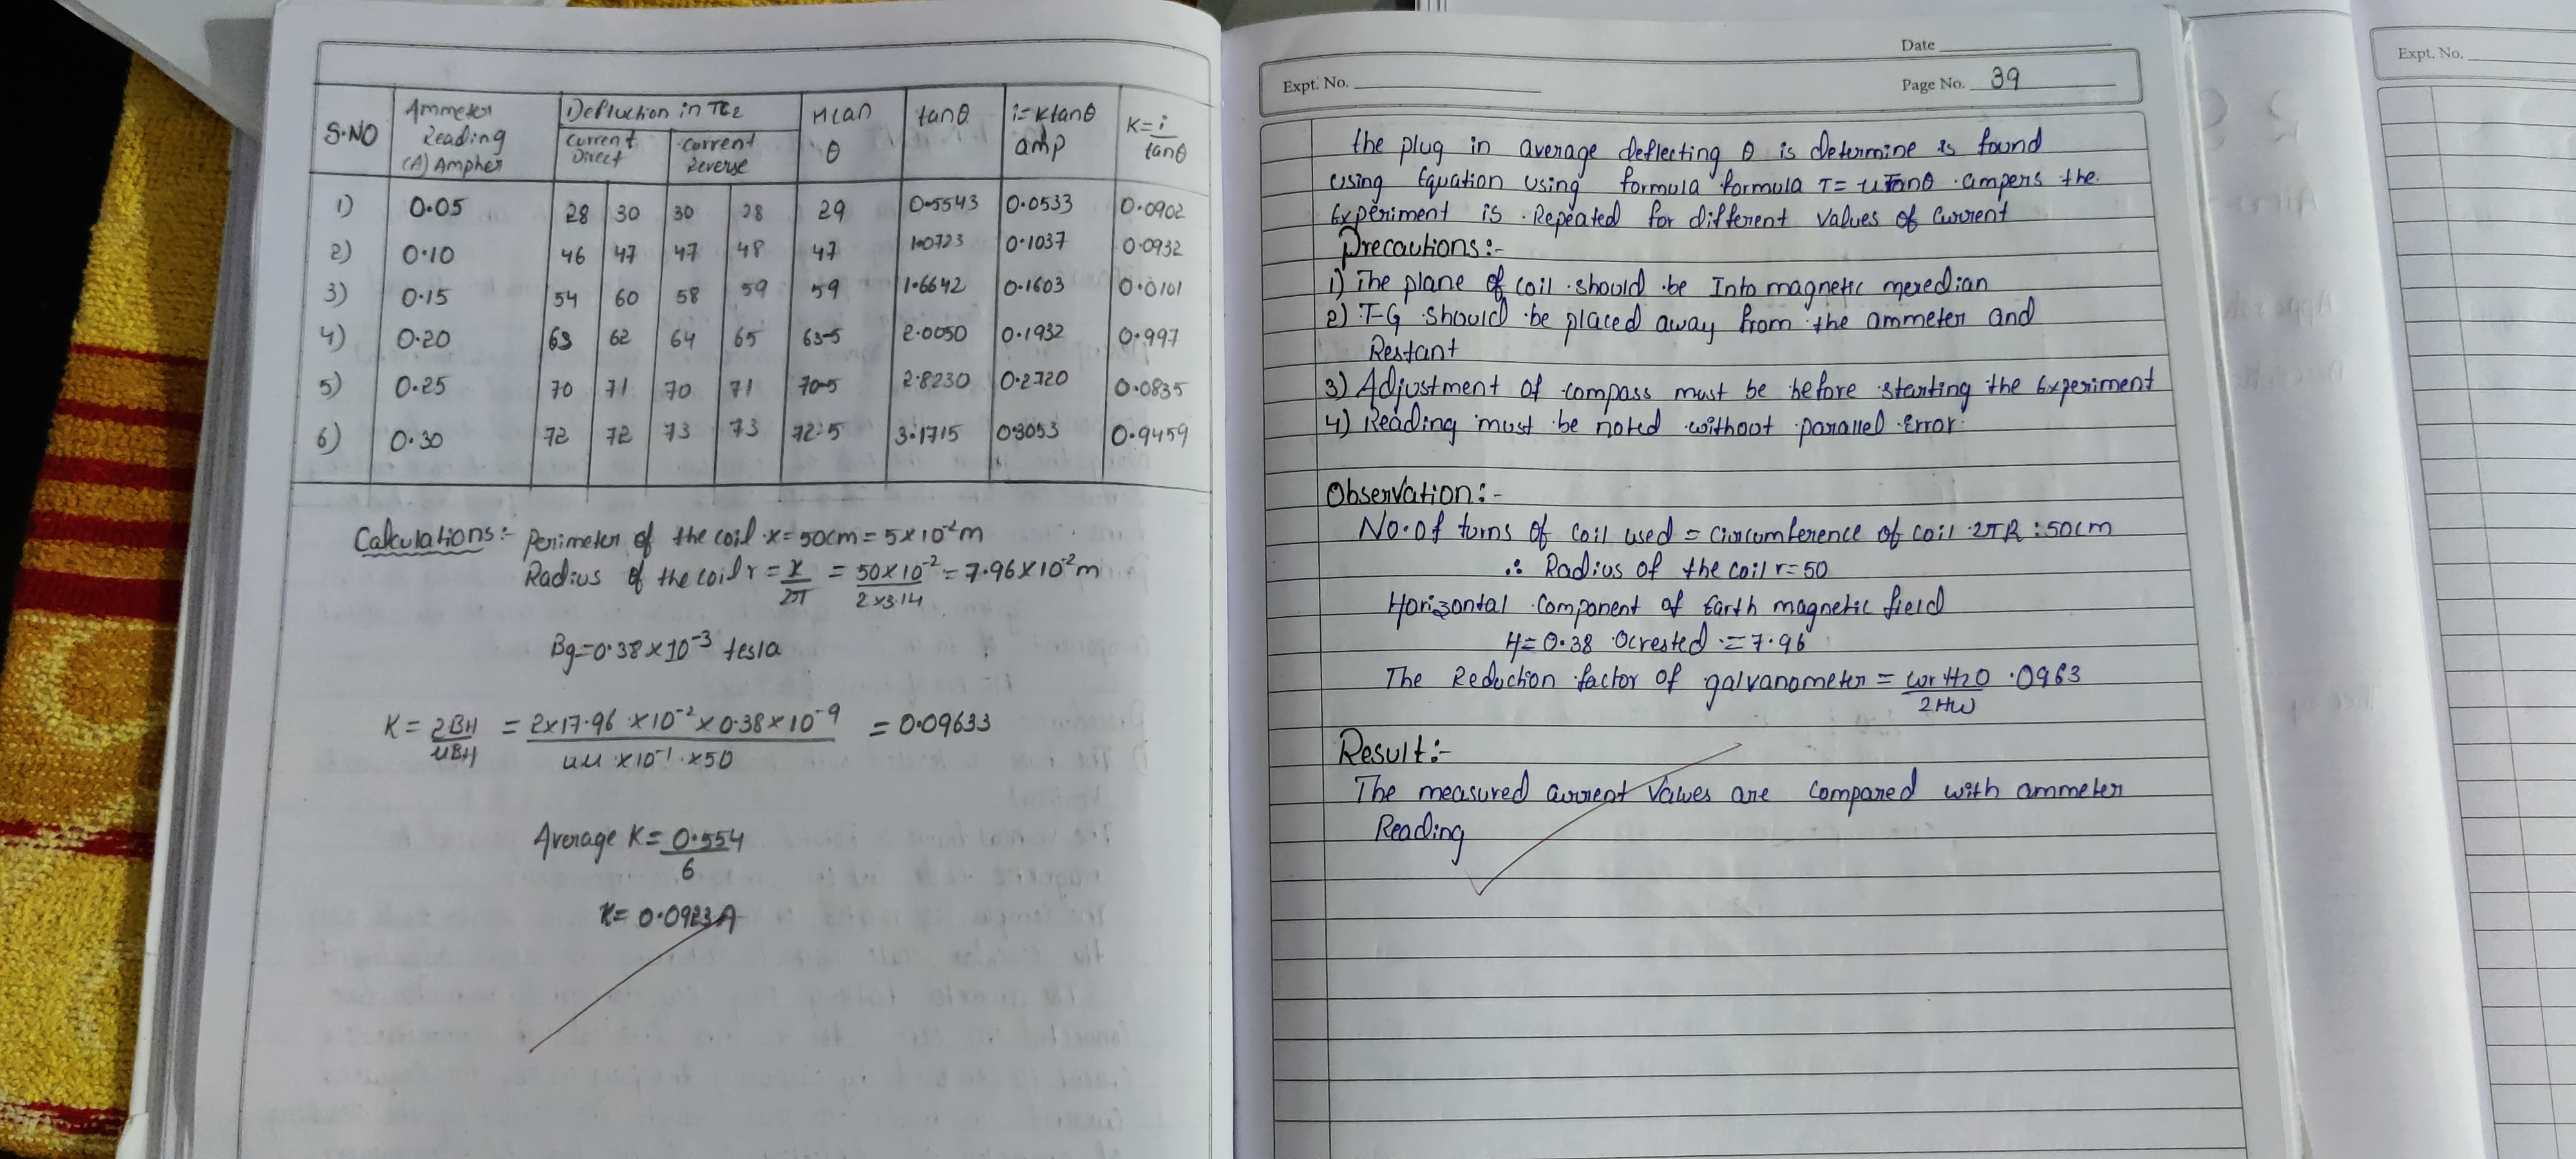 S.NO | Ammeter Reading (A) Ampher | Deflection in TC2 Current Direct | Current Reverse | Mean θ | tanθ | i=Ktanθ amp | K=i/tanθ
1) 0.05 28 30 30 28 29 0.5543 0.0533 0.0902
2) 0.10 46 47 47 48 47 1.0723 0.1037 0.0932
3) 0.15 54 60 58 59 59 1.6642 0.1603 0.0101
4) 0.20 63 62 64 65 63.5 2.0050 0.1932 0.997
5) 0.25 70 71 70 71 70.5 2.8230 0.2720 0.0835
6) 0.30 72 72 73 73 72.5 3.1715 0.3053 0.9459
Calculations:- Perimeter of the coil x=50cm=5×10⁻²m
Radius of the coil r=x/2π = 50×10⁻²/2×3.14 = 7.96×10⁻²m
Bg=0.38×10⁻³ tesla
K=2BH/uBH = 2×17.96×10⁻²×0.38×10⁻⁹/uu×10⁻¹×50 = 0.09633
Average K=0.554/6
K=0.0923A
Date
Expt. No.
Page No. 39
the plug in average deflecting θ is determine is found
using Equation using formula formula I= uTanθ ampers the
Experiment is Repeated for different values of current
Precautions:-
1) The plane of coil should be Into magnetic meredian
2) T-G should be placed away from the ammeter and
Restant
3) Adjustment of compass must be before starting the Experiment
4) Reading must be noted without parallel Error.
Observation:-
No.of turns of coil used = Circumference of coil 2πR:50cm
∴ Radius of the coil r=50
Horizontal component of Earth magnetic field
H=0.38 Ocrested = 7.96
The Reduction factor of galvanometer = H20/2HW .0963
Result:-
The measured current values are compared with ammeter
Reading
Expt. No.